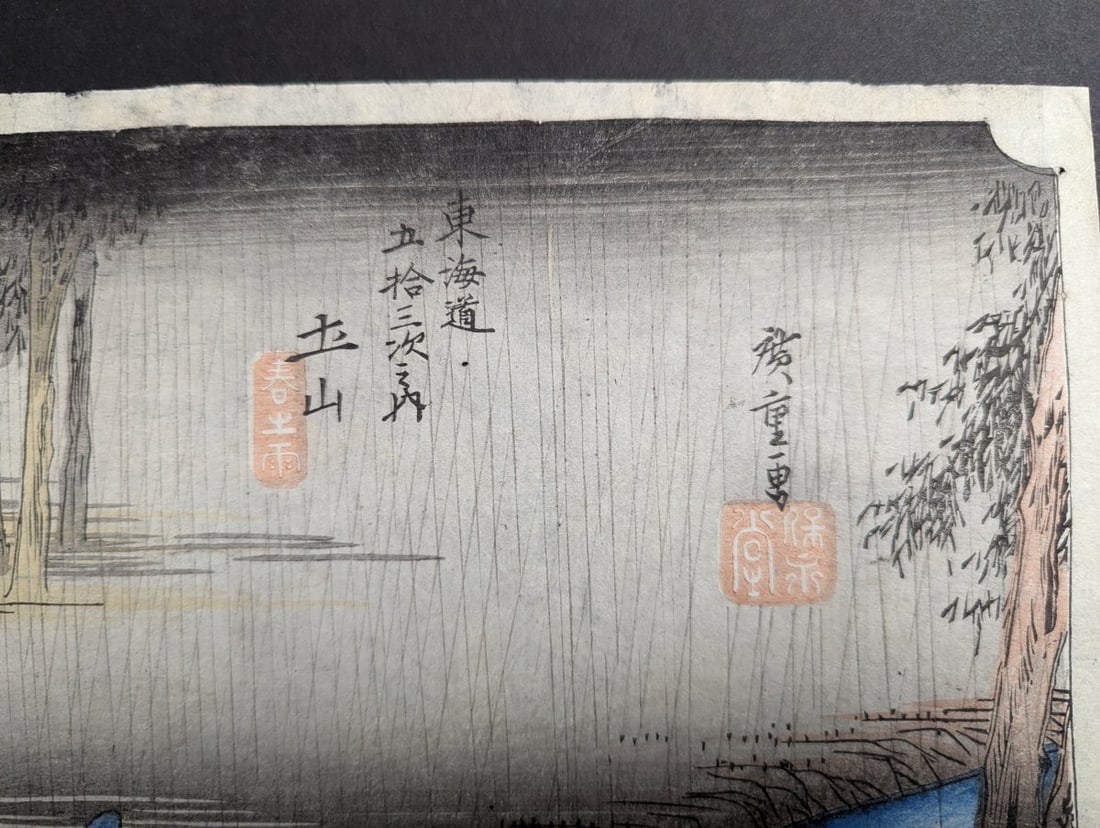 廣重画
保永堂
東海道
五拾三次之内
土山
春之雨